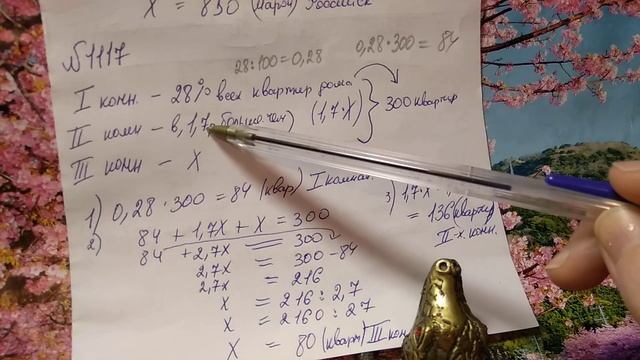 X = 850 (марок)
№1117
28:100=0,28 0,28·300=84
I комн. - 28% всех квартир дома
II комн - в 1,7 больше, чем) (1,7·X) } 300 квартир
III комн - X
1) 0,28·300=84 (квар) I комнат.
2) 84 + 1,7X + X = 300
84 + 2,7X = 300
2,7X = 300-84
2,7X = 216
X = 216:2,7
X = 2160:27
X = 80 (кварт) III ком
3) 1,7·X
= 136 (квартир
II-х. комн.